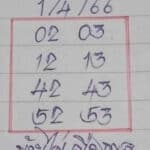 1/4/66
02 03
12 13
42 43
52 53